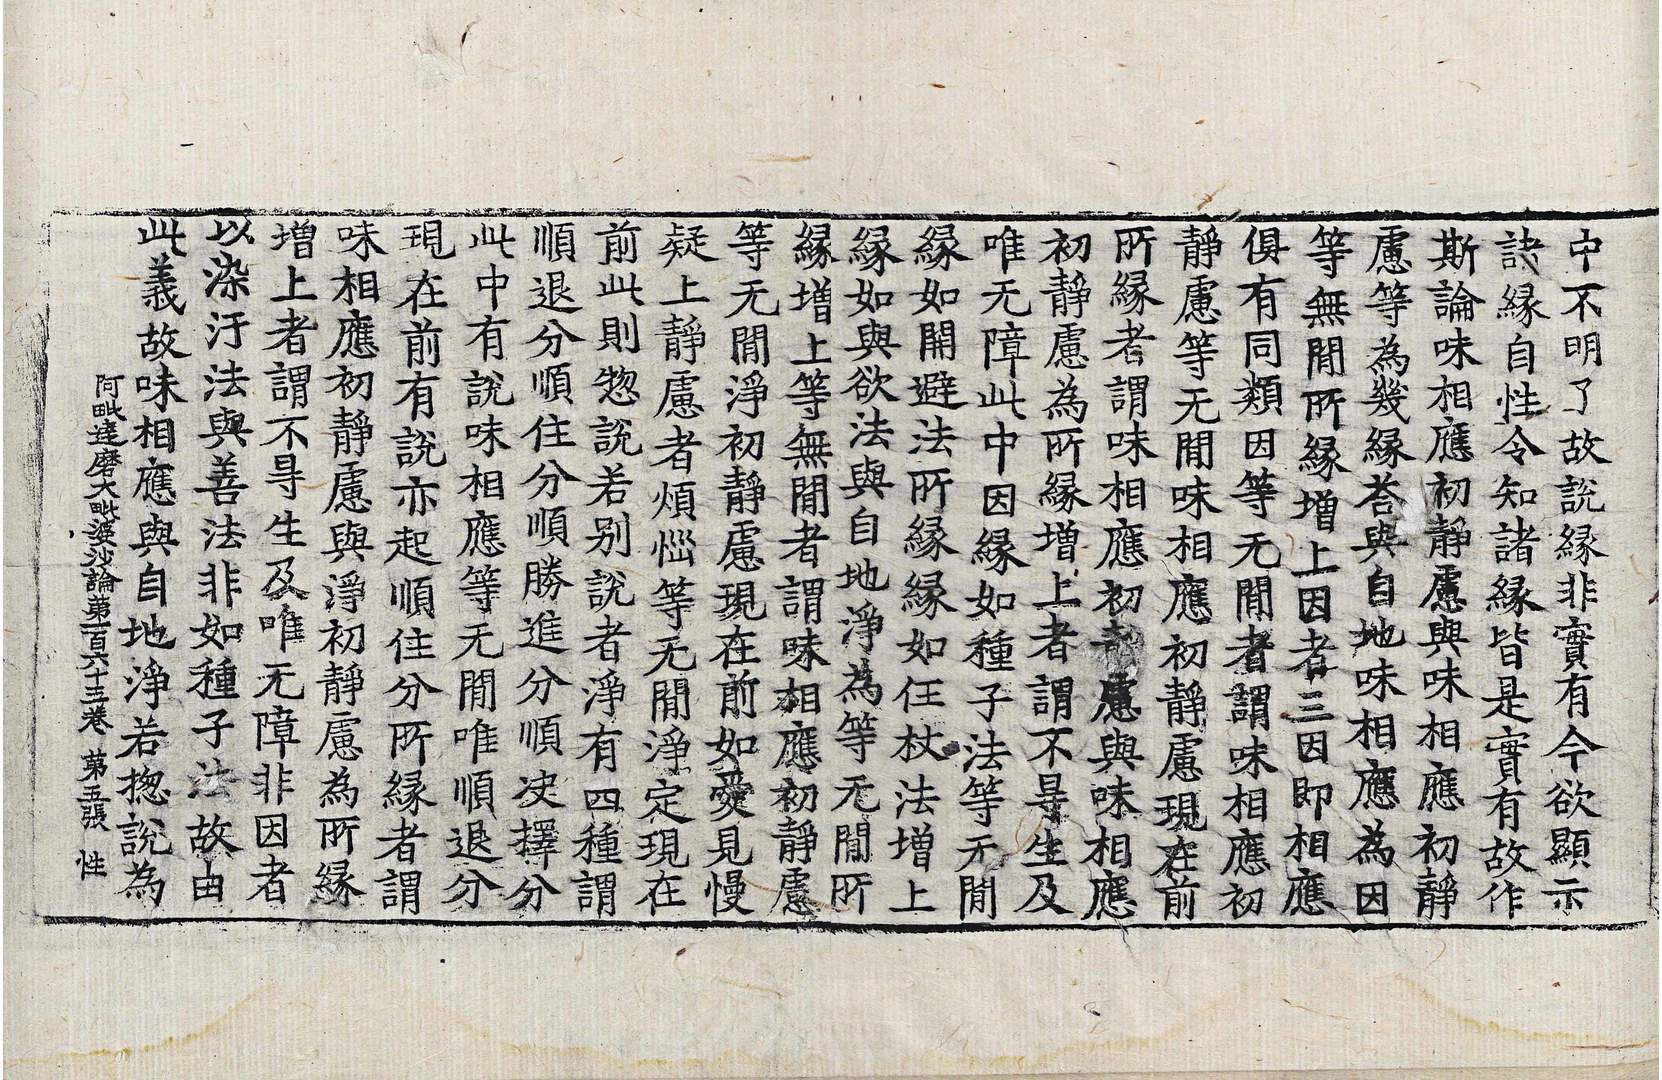 中不明了故說縁非實有今欲顯示
訣縁自性令知諸縁皆是實有故作
斯論味相應初靜慮與味相應初靜
慮等為幾縁荅與自地味相應為因
等無閒所縁增上因者三因即相應
俱有同類因等无閒者謂味相應初
靜慮等无閒味相應初靜慮現在前
所縁者謂味相應初靜慮與味相應
初靜慮為所縁增上者謂不㝵生及
唯无障此中因縁如種子法等无閒
縁如開避法所縁縁如任杖法增上
縁如與欲法與自地淨為等无閒所
縁增上等無閒者謂味相應初靜慮
等无閒淨初靜慮現在前如愛見慢
疑上靜慮者煩惱等无閒淨定現在
前此則惣說若别說者淨有四種謂
順退分順住分順勝進分順决擇分
此中有說味相應等无閒唯順退分
現在前有說亦起順住分所縁者謂
味相應初靜慮與淨初靜慮為所縁
增上者謂不㝵生及唯无障非因者
以染汙法與善法非如種子法故由
此義故味相應與自地淨若揔說為
阿毗達磨大毗婆沙論第一百六十三卷 第五張 性